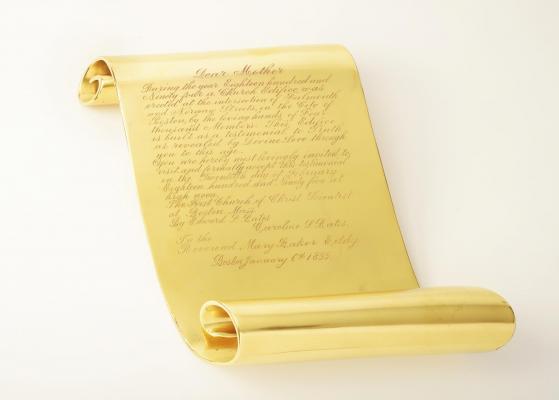 Dear Mother
During the year Eighteen hundred and
Ninety four a Church Edifice was
erected at the intersection of Falmouth
and Norway Streets, in the City of
Boston, by the loving hands of Four
thousand Members. This Edifice
is built as a testimonial to Truth
as revealed by Divine Love through
you to this age.
You are hereby most lovingly invited to
visit and formally accept this testimonial
on the twentieth day of February
Eighteen hundred and ninety five at
high noon.
The First Church of Christ Scientist
at Boston Mass.
By Edward P. Bates
Caroline S. Bates.
To the
Reverend Mary Baker Eddy.
Boston January 6th 1895.